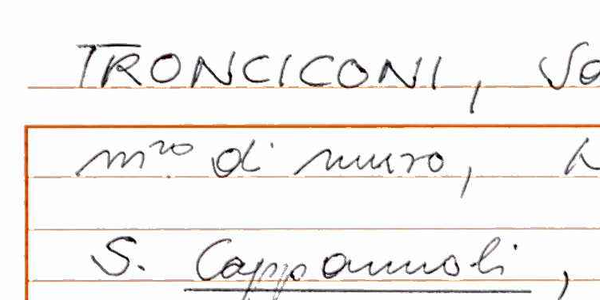 TRONCICONI,
m.ro di muro,
S. Cappannoli,